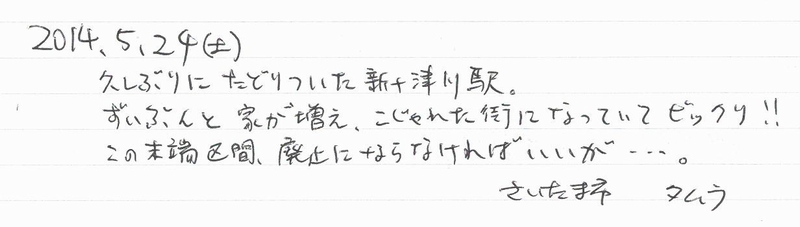 2014.5.24(土)
久しぶりにたどりついた新十津川駅。
ずいぶんと家が増え、こじゃれた街になっていてビックリ!!
この末端区間、廃止にならなければいいが…。
さいたま市 タムラ